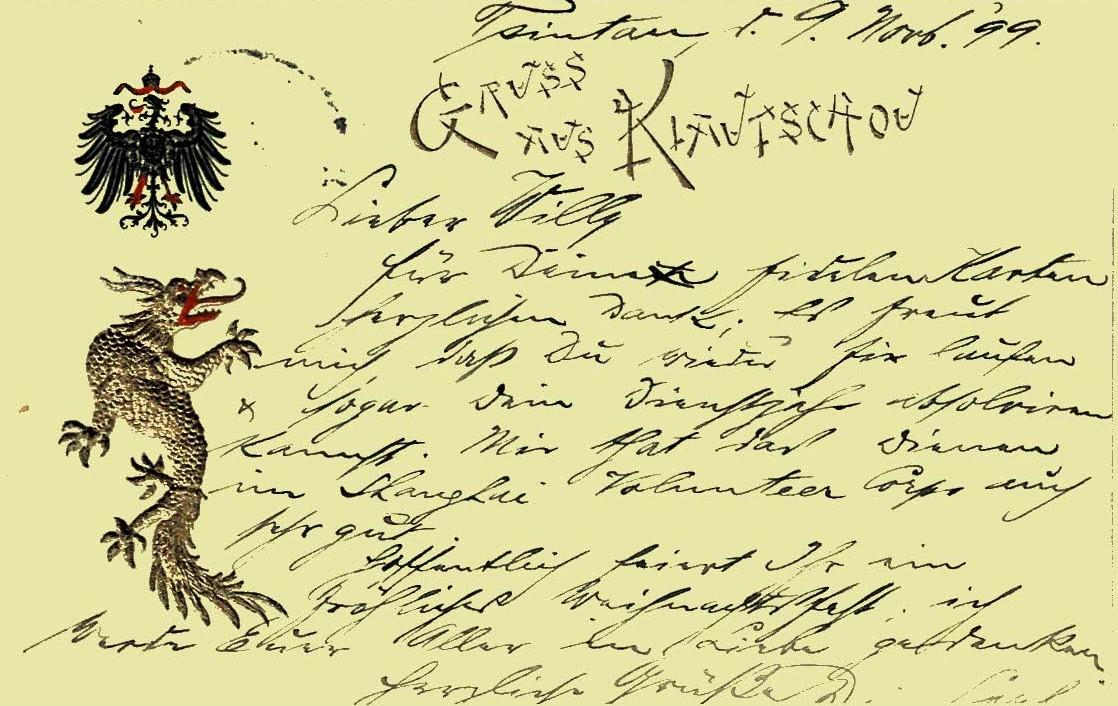 Tsintau, d. 9. Novb. '99.
GRUSS
AUS KIAUTSCHOU
Lieber Willy
für Deine fidelen Karten
herzlichen Dank. Es freut
mich daß Du wieder fix laufen
& sogar Dein Dienstjahr absolviren
kannst. Mir that das Dienen
im Shanghai Volunteer Corps auch
sehr gut.
Hoffentlich feiert Ihr ein
fröhliches Weihnachtsfest. ich
werde Euer Aller in Liebe gedenken
herzliche Grüße D.